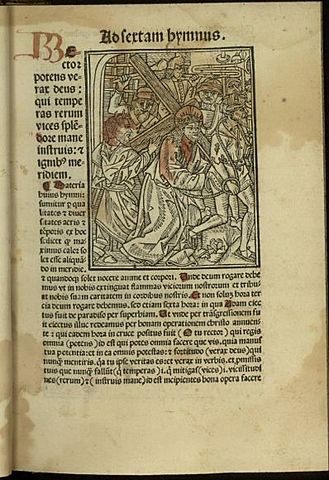 Ad sextam hymnus.
REctor
potens ve-
rax deus:
qui tempe
ras rerum
vices splē-
dore mane
instruis: ⁊
ignibꝰ me-
ridiem.
Materia
huius hymni
sumitur
litates ⁊ diuer
sitates aeris ⁊
tēporis ex hoc
scilicet
ximus calor so
let esse
do in meridie,
⁊ quandoqꝫ solet nocere anime et corpori. Unde deum rogare debe
mus vt in nobis extinguat flammas viciorum nostrorum et tribu-
at nobis suam caritatem in cordibus nostris. Et non solum hora ter
cia deum rogare debemus, sed etiam sexta hora: in qua Adam eiec
tus fuit de paradiso per superbiam. Ut vnde per trāsgressionem fu
it eiectus illuc redeamus per bonam operationem christo annuen-
te: qui eadem hora in cruce positus fuit (O tu rector) qui regis
omnia (potens) id est qui potes omnia facere que vis. quia manus
tua potentia: et in ea omnis potestas: fortitudo (verax deus) qui
nunqꝫ mentiris. qa tu ipse veritas es et verax in verbis. et
missis tuis que nunqꝫ fallūt (q temperas) i. q mitigas (vices) i. vicissitudi
nes (rerum) ⁊ ( instruis mane) id est incipientes bona opera facere